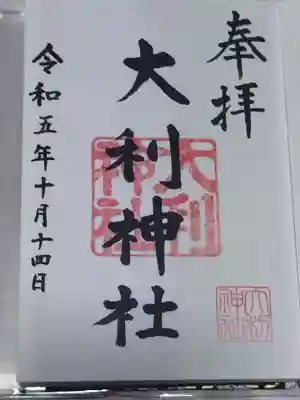 奉拝
大利神社
令和五年十月十四日
大利神社